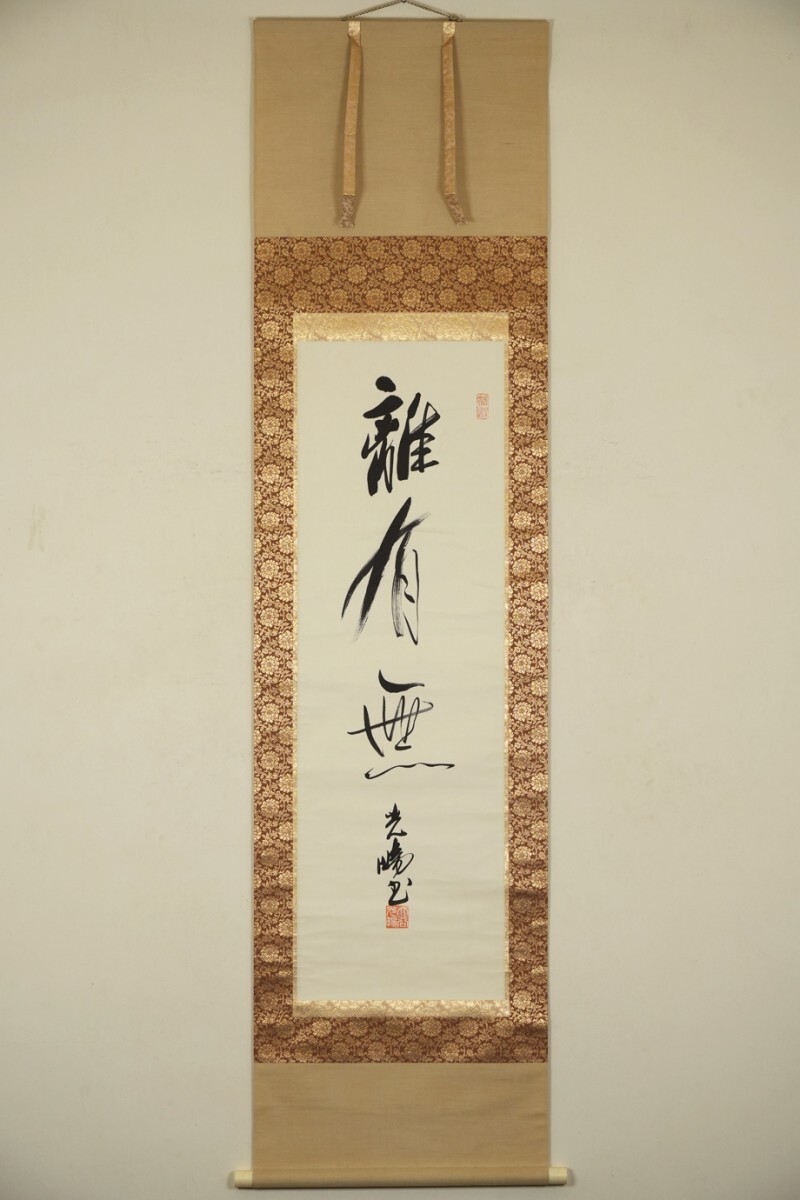 離有無
光暢書